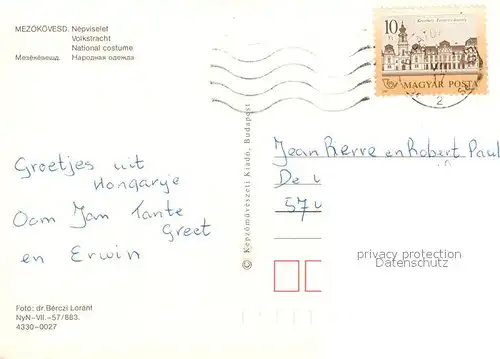 MEZŐKÖVESD. Népviselet
Volkstracht
National costume
Мезёкёвешд. Народная одежда
10
MAGYAR POSTA
2
© Képzőművészeti Kiadó, Budapest
Groetjes uit
Hongarije
Oom Jan Tante
Greet
en Erwin
Jean Pierre en Robert Paul
De
57
privacy protection
Datenschutz
Fotó: dr. Bérczi Loránt
NyN-VII.-57/883.
4330-0027